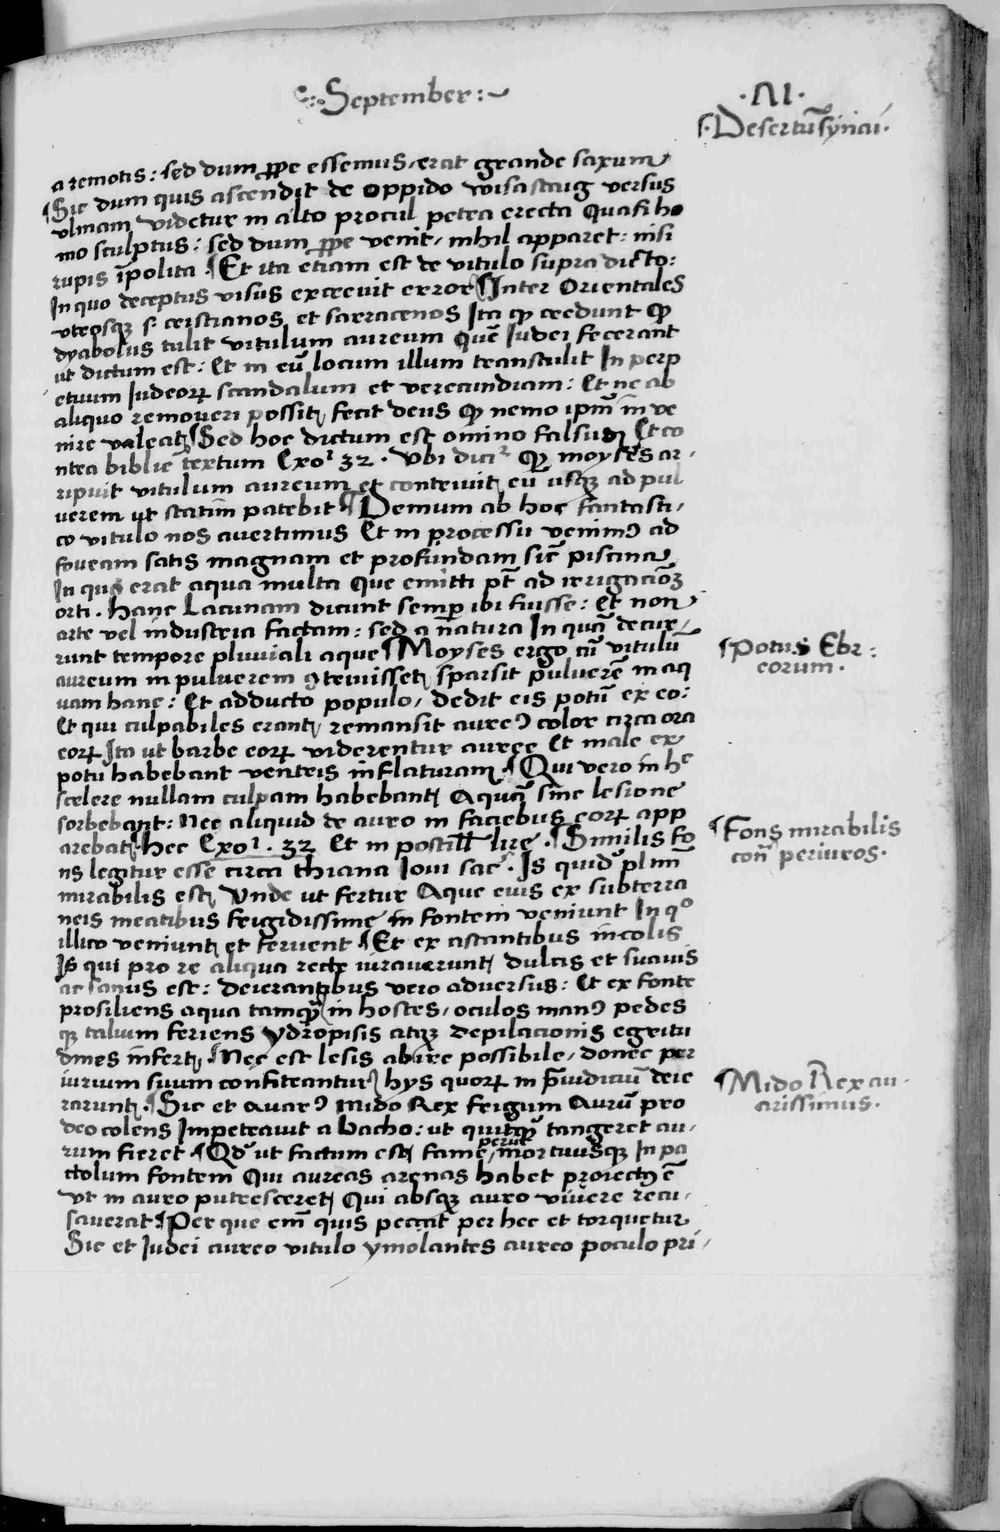 September:~
·VI·
Desertu̅ syinai·
a remotis: sed dum ꝓpe essemus, erat grande saxum
¶Sic dum quis ascendit de oppido wisastaig versus
vlmam videtur in alto procul petra erecta Quasi ho
mo sculptus: sed dum ꝓpe venit, nihil apparet: nisi
rupis i̅polita ¶Et ita etiam est de vitulo supra dicto:
In quo deceptus visus excrevit error ¶Inter Orientales
vtrosqꝫ s. cristianos et sarracenos Ita ꝙ credunt ꝙ
dyabolus tulit vitulum aureum Que̅ Iudei fecerant
ut dictum est: Et in eu̅ locum illum transtulit In perp
etuum Iudeoꝝ scandalum et verecundiam: Et ne ab
aliquo removeri possit, fecit deus ꝙ nemo ipm̅ in ve
nire valeat ¶Sed hoc dictum est omino falsum Et co
ntra biblie textum Exoꝰ 32 · Vbi diciꝰ ꝙ moyses ar-
ripuit vitulum aureum et contrivit eu̅ usqꝫ ad pul
verem ut statim patebit ¶Demum ab hoc fantasti,
co vitulo nos avertimus Et in processu venimꝰ ad
foveam satis magnam et profundam sic̅ piscina
In qua erat aqua multa Que emitti pt̅ ad irrigacio̅ꝫ
orti. Hanc Lacunam dicunt semꝑ ibi fuisse: Et non
arte vel industria factam: sed a natura In qua̅ decur,
runt tempore pluviali aque ¶Moyses ergo cu̅ vitulu̅
aureum in pulverem ꝯtrivisset, sparsit pulvere̅ in aq
uam hanc: Et adducto populo, dedit eis potu̅ ex eo:
Et qui culpabiles erant, remansit aureꝰ color circa ora
eoꝝ Ita ut barbe eoꝝ viderentur auree Et male ex
potu habebant ventris inflaturam. ¶Qui vero in hᶜ
scelere nullam culpam habebant, Aqua̅ sine lesione
sorbebant: Nec aliquid de auro in faciebus eoꝝ app
arebat. Hec Exoꝰ. 32 Et in postill̅ lire. ¶Similis fo
ns legitur esse circa thiana Ioui sac̅. Is quide̅
mirabilis est, Vnde ut fertur Aque eius ex subterra
neis meatibus frigidissime in fontem veniunt In qᵒ
illico veniunt, et fervent ¶Et ex astantibus incolis
Is qui pro re aliqua recte iuraverunt, dulcis et suavis
ac sanus est: deierantibus vero adversus: Et ex fonte
prosiliens aqua tamqꝫ in hostes, oculos manꝰ pedes
qꝫ talium feriens ydropisis atqꝫ depilacionis egritu
dines infert, ¶Nec est lesis abire possibile, donec per
iurium suum confiteantur, hys quoꝝ in p̅iudiciu̅ deie
rarunt. ¶Sic et avarꝰ Mido Rex frigum Auru̅ pro
deo colens Impetravit a bacho: ut quitqꝫ tangeret au-
rum fieret ¶Qd̅ ut factum est, fame perut, mortuusqꝫ In pa
ctolum fontem Qui aureas arenas habet proiectꝰ e̅
Vt in auro putresceret, Qui absqꝫ auro vivere recu,
saverat. ¶Per que em̅ quis peccat per hec et torquetur
Sic et Iudei aureo vitulo ymolantes aureo poculo pri,
¶Potus Ebr:
eorum.
¶Fons mirabilis
con̅ periuros.
¶Mido Rex au-
arissimus.